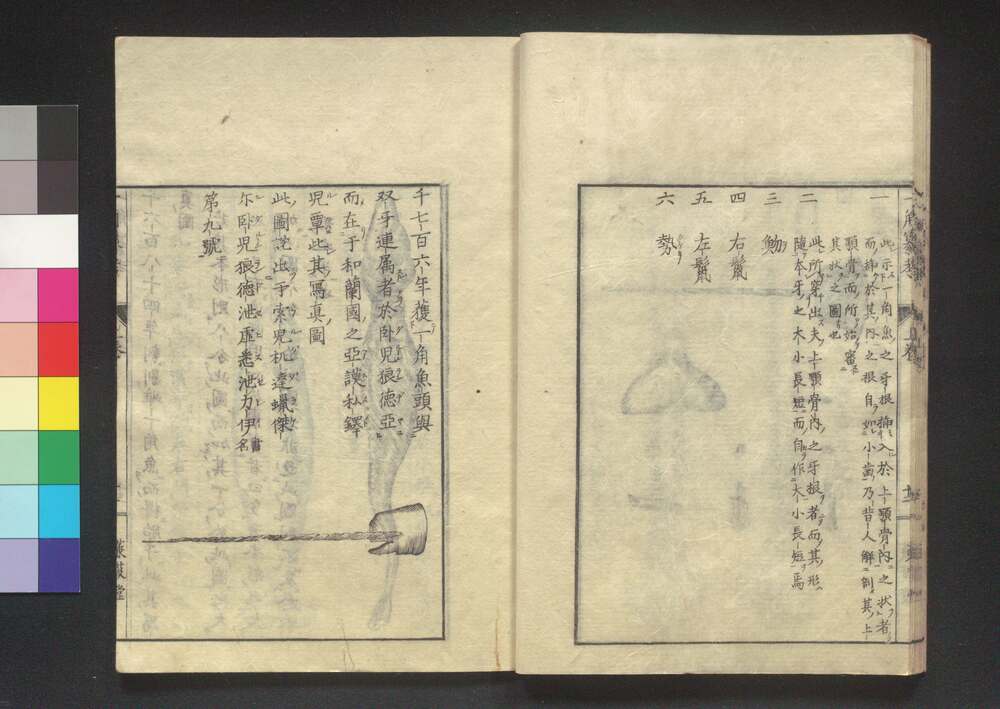 一
此示一角魚之牙根挿入於上顎骨内之状者
而掃於其内之根自如小歯乃昔人解割其上
顎骨而所始審
其状之圖也
二
此所穿出夫上顎骨内之牙根者而其形
随本牙之大小長短而自作大小長短焉
三
四
右鬣
五
左鬣
六
勢
千七百六年獲一角魚頭與
双牙連属者於卧児狼德亞
而在于和蘭國之亞謨私鐸
児覃此其寫真圖
此圖説出于索児札逹蠟傑
尓卧児狼德泄重悉泄力伊書名
第九號
蒹葭堂